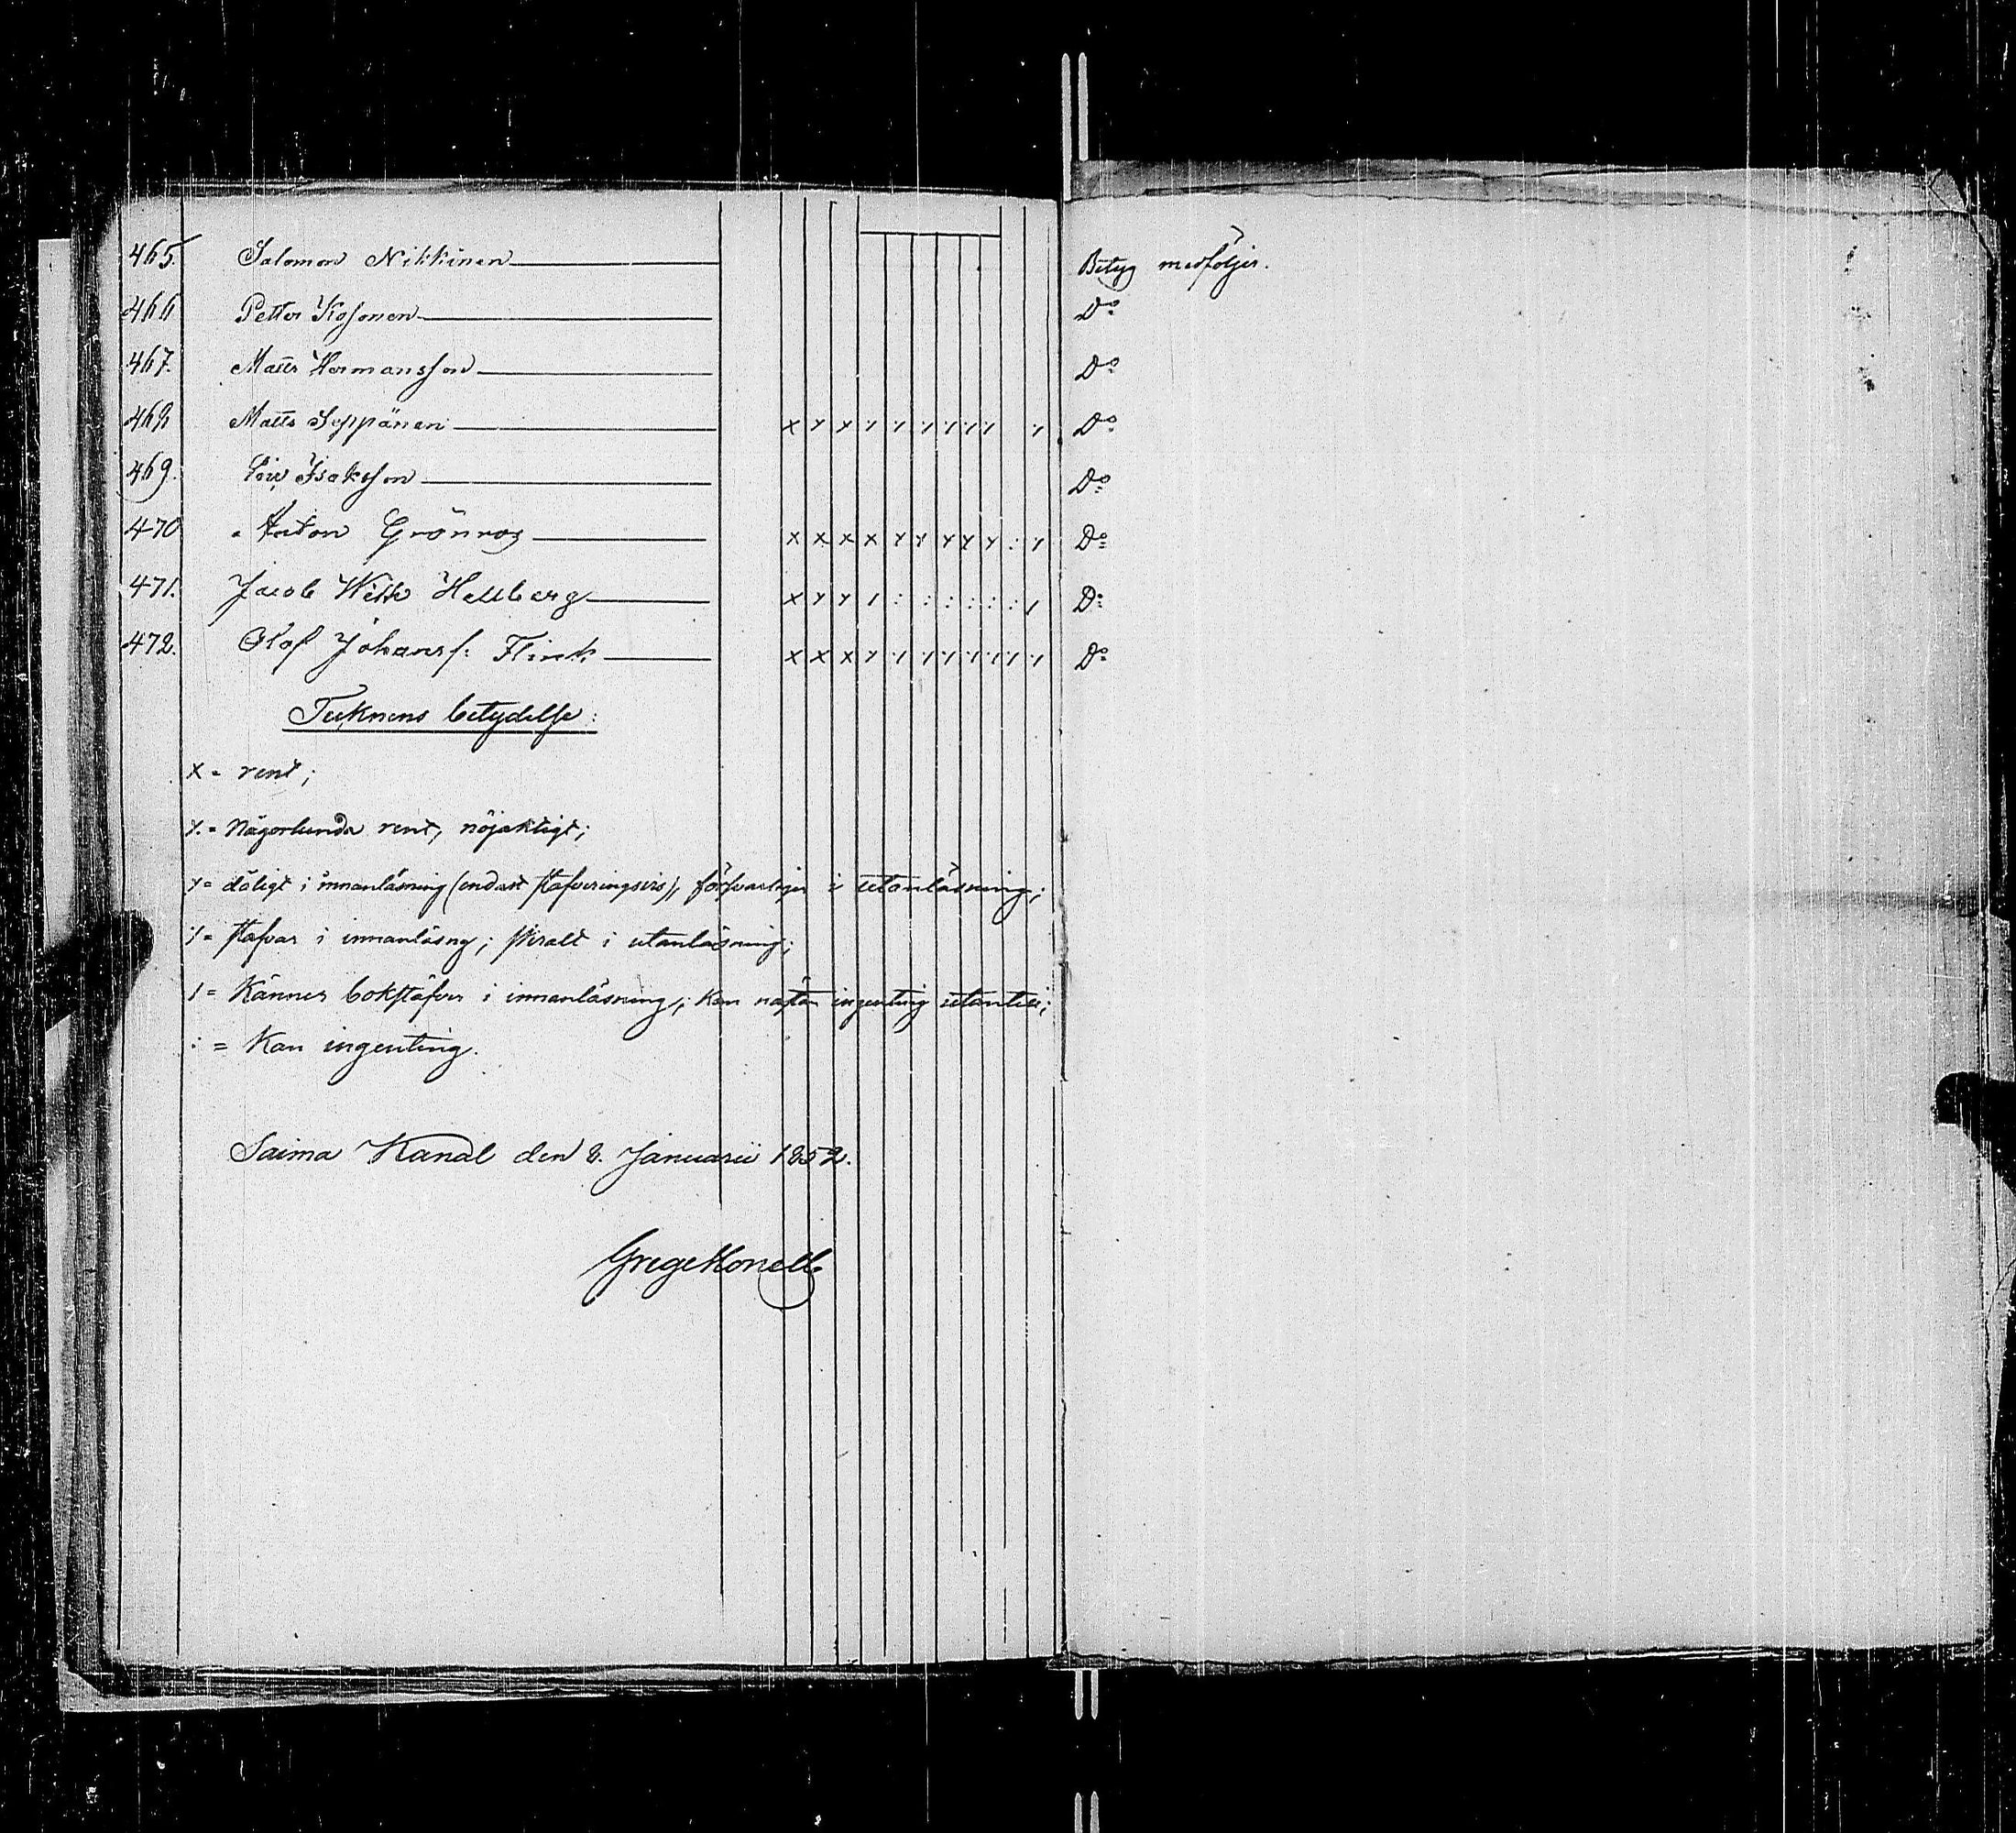 465. Salomon Nikkinen Betyg medföljer.
466 Petter Kosonen Do
467. Matts Hermansson Do
468 Matts Seppänen x y y y y y y y y y Do
469. Isaksson Do
470 Anton Grönroos x x x x y y y y y : y Do
471. Jacob Wilh Hellberg x y y / : : : : : : / Do
472. Olof Johanss: Flink x x x y Do
Teknens betydelse:
x = rent;
y. = Någorlunda rent, nöjaktigt;
y = dåligt i innanläsning (endast stafveringsvis), försvarliger i utanläsning;
·/· = stafvar i innanläsng; skralt i utanläsning;
/ = Känner bokstäfver i innanläsning; kan nästan ingenting utantill;
: = Kan ingenting.
Saima Kanal den 8. Januarii 1852.